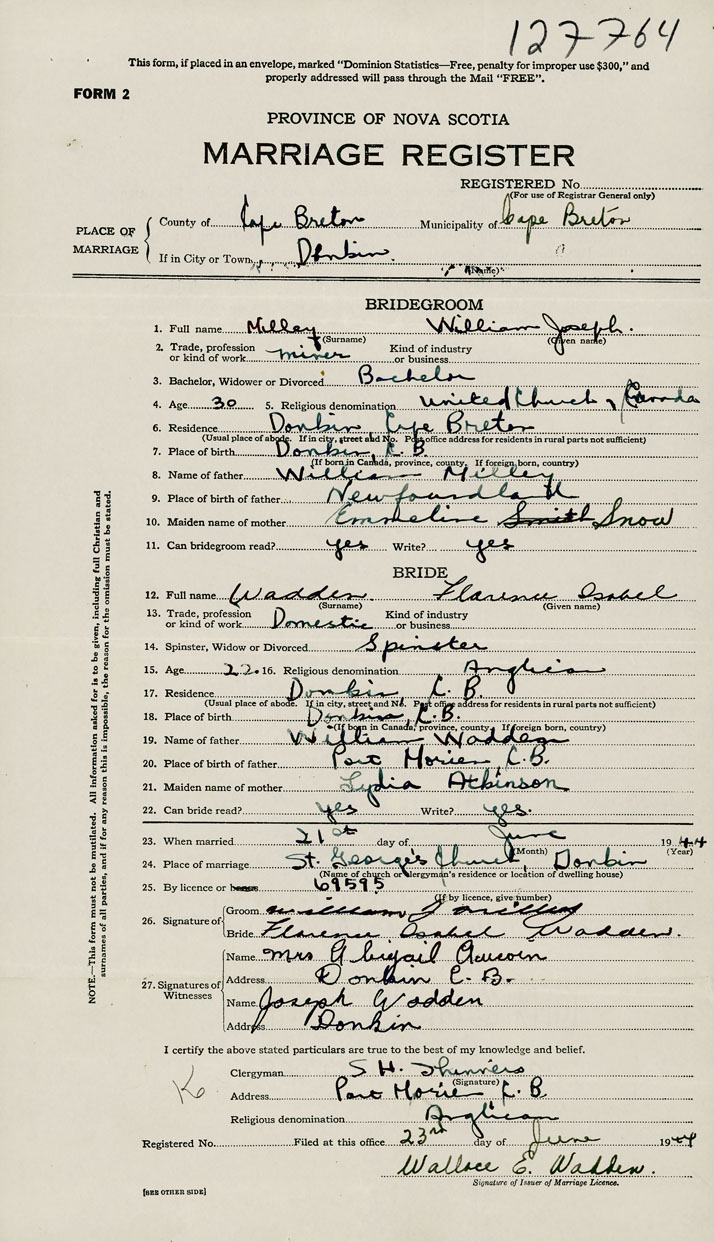 127764
This form, if placed in an envelope, marked "Dominion Statistics—Free, penalty for improper use $300," and
properly addressed will pass through the Mail "FREE".
FORM 2
PROVINCE OF NOVA SCOTIA
MARRIAGE REGISTER
REGISTERED No.
(For use of Registrar General only)
PLACE OF MARRIAGE
County of Cape Breton Municipality of Cape Breton
If in City or Town Donkin
(Name)
BRIDEGROOM
1. Full name Milley William Joseph.
(Surname) (Given name)
2. Trade, profession or kind of work miner Kind of industry or business
3. Bachelor, Widower or Divorced Bachelor
4. Age 30 5. Religious denomination United Church of Canada
6. Residence Donkin Cape Breton
(Usual place of abode. If in city, street and No. Post office address for residents in rural parts not sufficient)
7. Place of birth Donkin, C.B.
(If born in Canada, province, county. If foreign born, country)
8. Name of father William Milley
9. Place of birth of father Newfoundland
10. Maiden name of mother Emmeline Smith Snow
11. Can bridegroom read? yes Write? yes
BRIDE
12. Full name Wadden Florence Isabel
(Surname) (Given name)
13. Trade, profession or kind of work Domestic Kind of industry or business
14. Spinster, Widow or Divorced Spinster
15. Age 22. 16. Religious denomination Anglican
17. Residence Donkin, C.B.
(Usual place of abode. If in city, street and No. Post office address for residents in rural parts not sufficient)
18. Place of birth Donkin, C.B.
(If born in Canada, province, county. If foreign born, country)
19. Name of father William Wadden
20. Place of birth of father Port Morien, C.B.
21. Maiden name of mother Lydia Atkinson
22. Can bride read? yes Write? yes.
23. When married 21st day of June 1944
(Month) (Year)
24. Place of marriage St. George's Church, Donkin
(Name of church or clergyman's residence or location of dwelling house)
25. By licence or banns 69595
(If by licence, give number)
26. Signature of
Groom William J Milley
Bride Florence Isabel Wadden.
27. Signatures of Witnesses
Name Mrs Abigail Aucoin
Address Donkin C.B.
Name Joseph Wadden
Address Donkin
I certify the above stated particulars are true to the best of my knowledge and belief.
Clergyman S. H.
(Signature)
Address Port Morien C.B.
Religious denomination Anglican
Registered No. Filed at this office 23rd day of June 1944
Wallace E. Wadden.
Signature of Issuer of Marriage Licence.
[SEE OTHER SIDE]
NOTE.—This form must not be mutilated. All information asked for is to be given, including full Christian and
surnames of all parties, and if for any reason this is impossible, the reason for the omission must be stated.